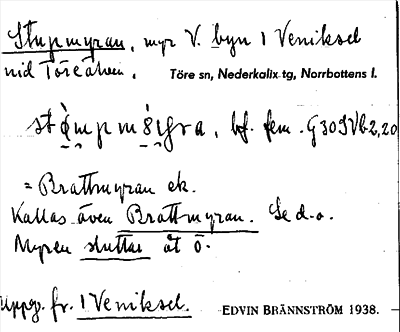 Stupmyran, myr V. byn 1 Veniksel
vid Töreälven. Töre sn, Nederkalix tg, Norrbottens l.
bf. fem. G30SVb2,20
= Brattmyran ek.
Kallas även Brattmyran. Se d.o.
Myren sluttar åt ö.
Uppg. fr. 1 Veniksel. EDVIN BRÄNNSTRÖM 1938.